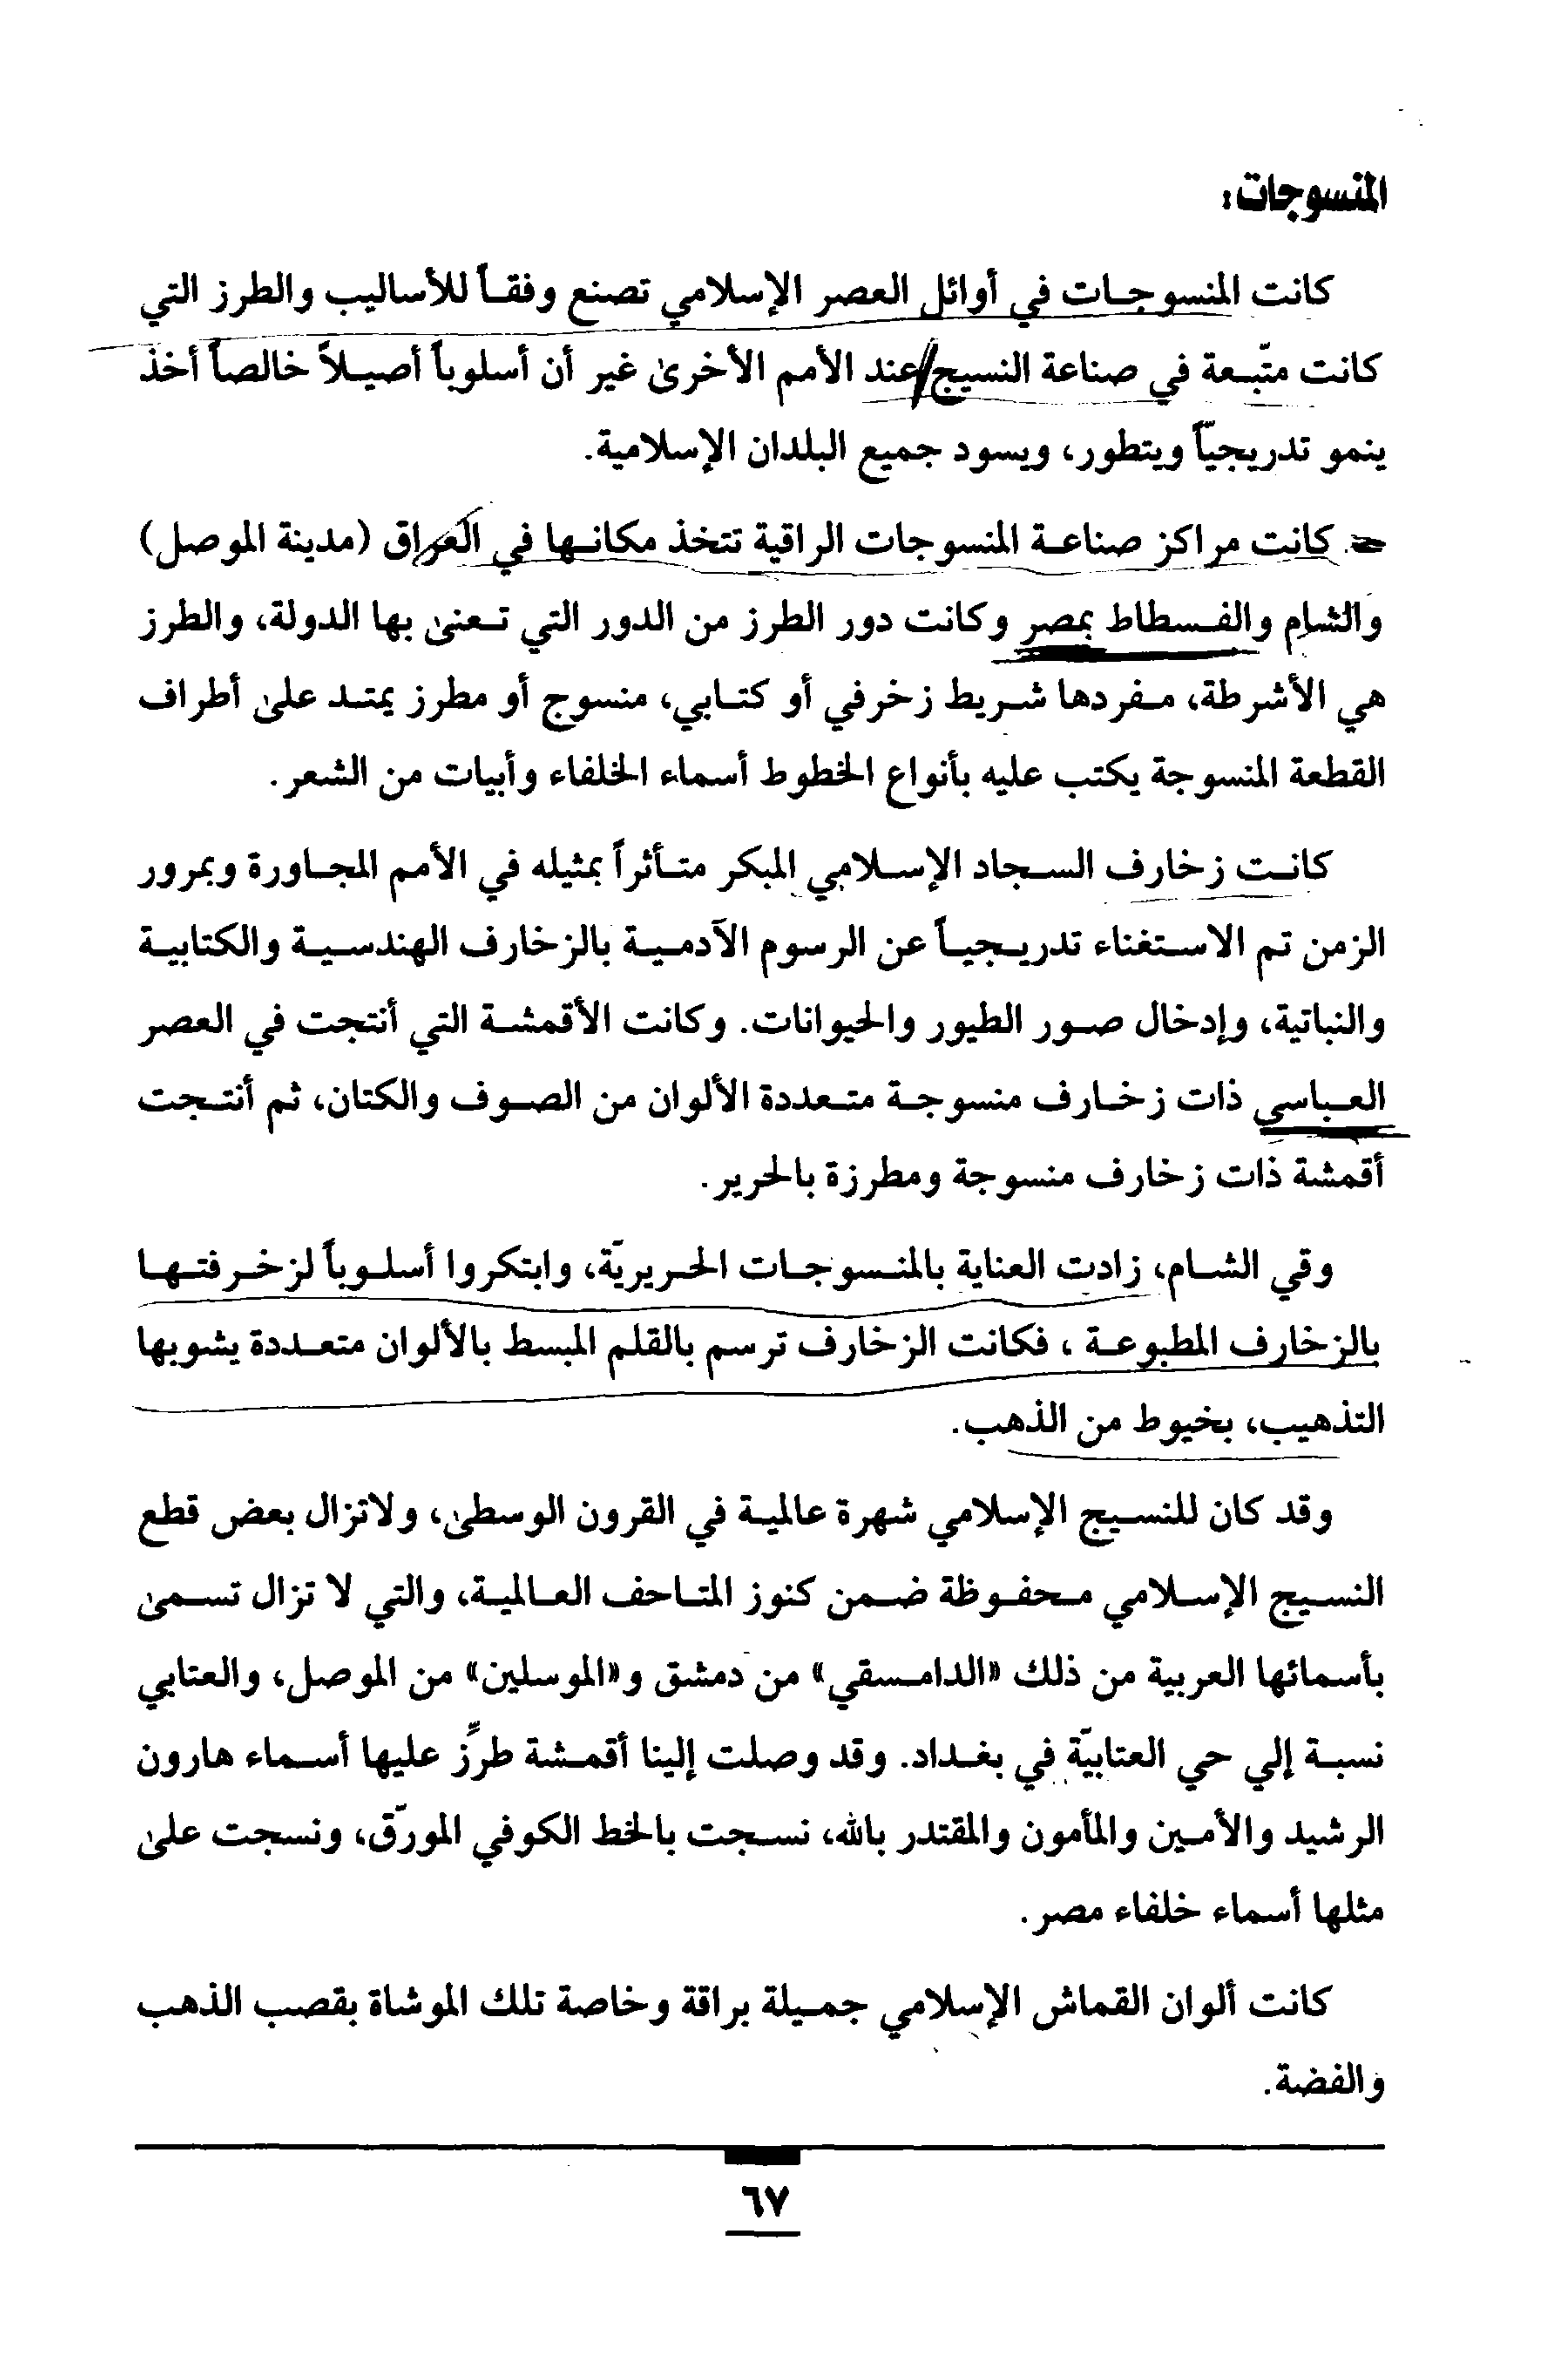 المنسوجات:
كانت المنسوجات في أوائل العصر الإسلامي تصنع وفقاً للأساليب والطرز التي
كانت متّبعة في صناعة النسيج/عند الأمم الأخرى غير أن أسلوباً أصيلاً خالصاً أخذ
ينمو تدريجيّاً ويتطور، ويسود جميع البلدان الإسلامية.
كانت مراكز صناعة المنسوجات الراقية تتخذ مكانها في العراق (مدينة الموصل)
والشام والفسطاط بمصر وكانت دور الطرز من الدور التي تعنى بها الدولة، والطرز
هي الأشرطة، مفردها شريط زخرفي أو كتابي، منسوج أو مطرز يمتد على أطراف
القطعة المنسوجة يكتب عليه بأنواع الخطوط أسماء الخلفاء وأبيات من الشعر.
كانت زخارف السجاد الإسلامي المبكر متأثراً بمثيله في الأمم المجاورة وبمرور
الزمن تم الاستغناء تدريجياً عن الرسوم الآدمية بالزخارف الهندسية والكتابية
والنباتية، وإدخال صور الطيور والحيوانات. وكانت الأقمشة التي أنتجت في العصر
العباسي ذات زخارف منسوجة متعددة الألوان من الصوف والكتان، ثم أنتجت
أقمشة ذات زخارف منسوجة ومطرزة بالحرير.
وقي الشام، زادت العناية بالمنسوجات الحريريّة، وابتكروا أسلوباً لزخرفتها
بالزخارف المطبوعة ، فكانت الزخارف ترسم بالقلم المبسط بالألوان متعددة يشوبها
التذهيب، بخيوط من الذهب.
وقد كان للنسيج الإسلامي شهرة عالمية في القرون الوسطى، ولاتزال بعض قطع
النسيج الإسلامي محفوظة ضمن كنوز المتاحف العالمية، والتي لا تزال تسمى
بأسمائها العربية من ذلك «الدامسقي» من دمشق و«الموسلين» من الموصل، والعتابي
نسبة إلي حي العتابيّة في بغداد. وقد وصلت إلينا أقمشة طرِّز عليها أسماء هارون
الرشيد والأمين والمأمون والمقتدر بالله، نسجت بالخط الكوفي المورّق، ونسجت على
مثلها أسماء خلفاء مصر.
كانت ألوان القماش الإسلامي جميلة براقة وخاصة تلك الموشاة بقصب الذهب
والفضة.
٦٧